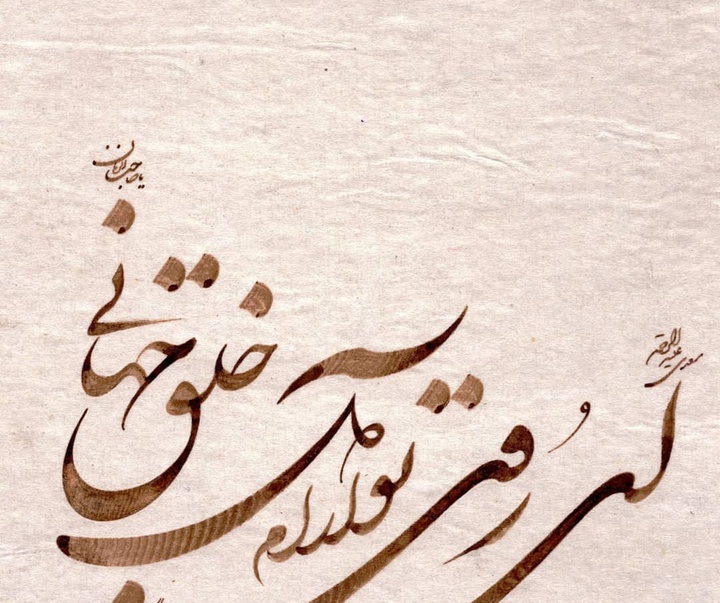 سعدی علیه الرحمه
رفتی و تو آرام خلق جهانی
یا صاحب الزمان